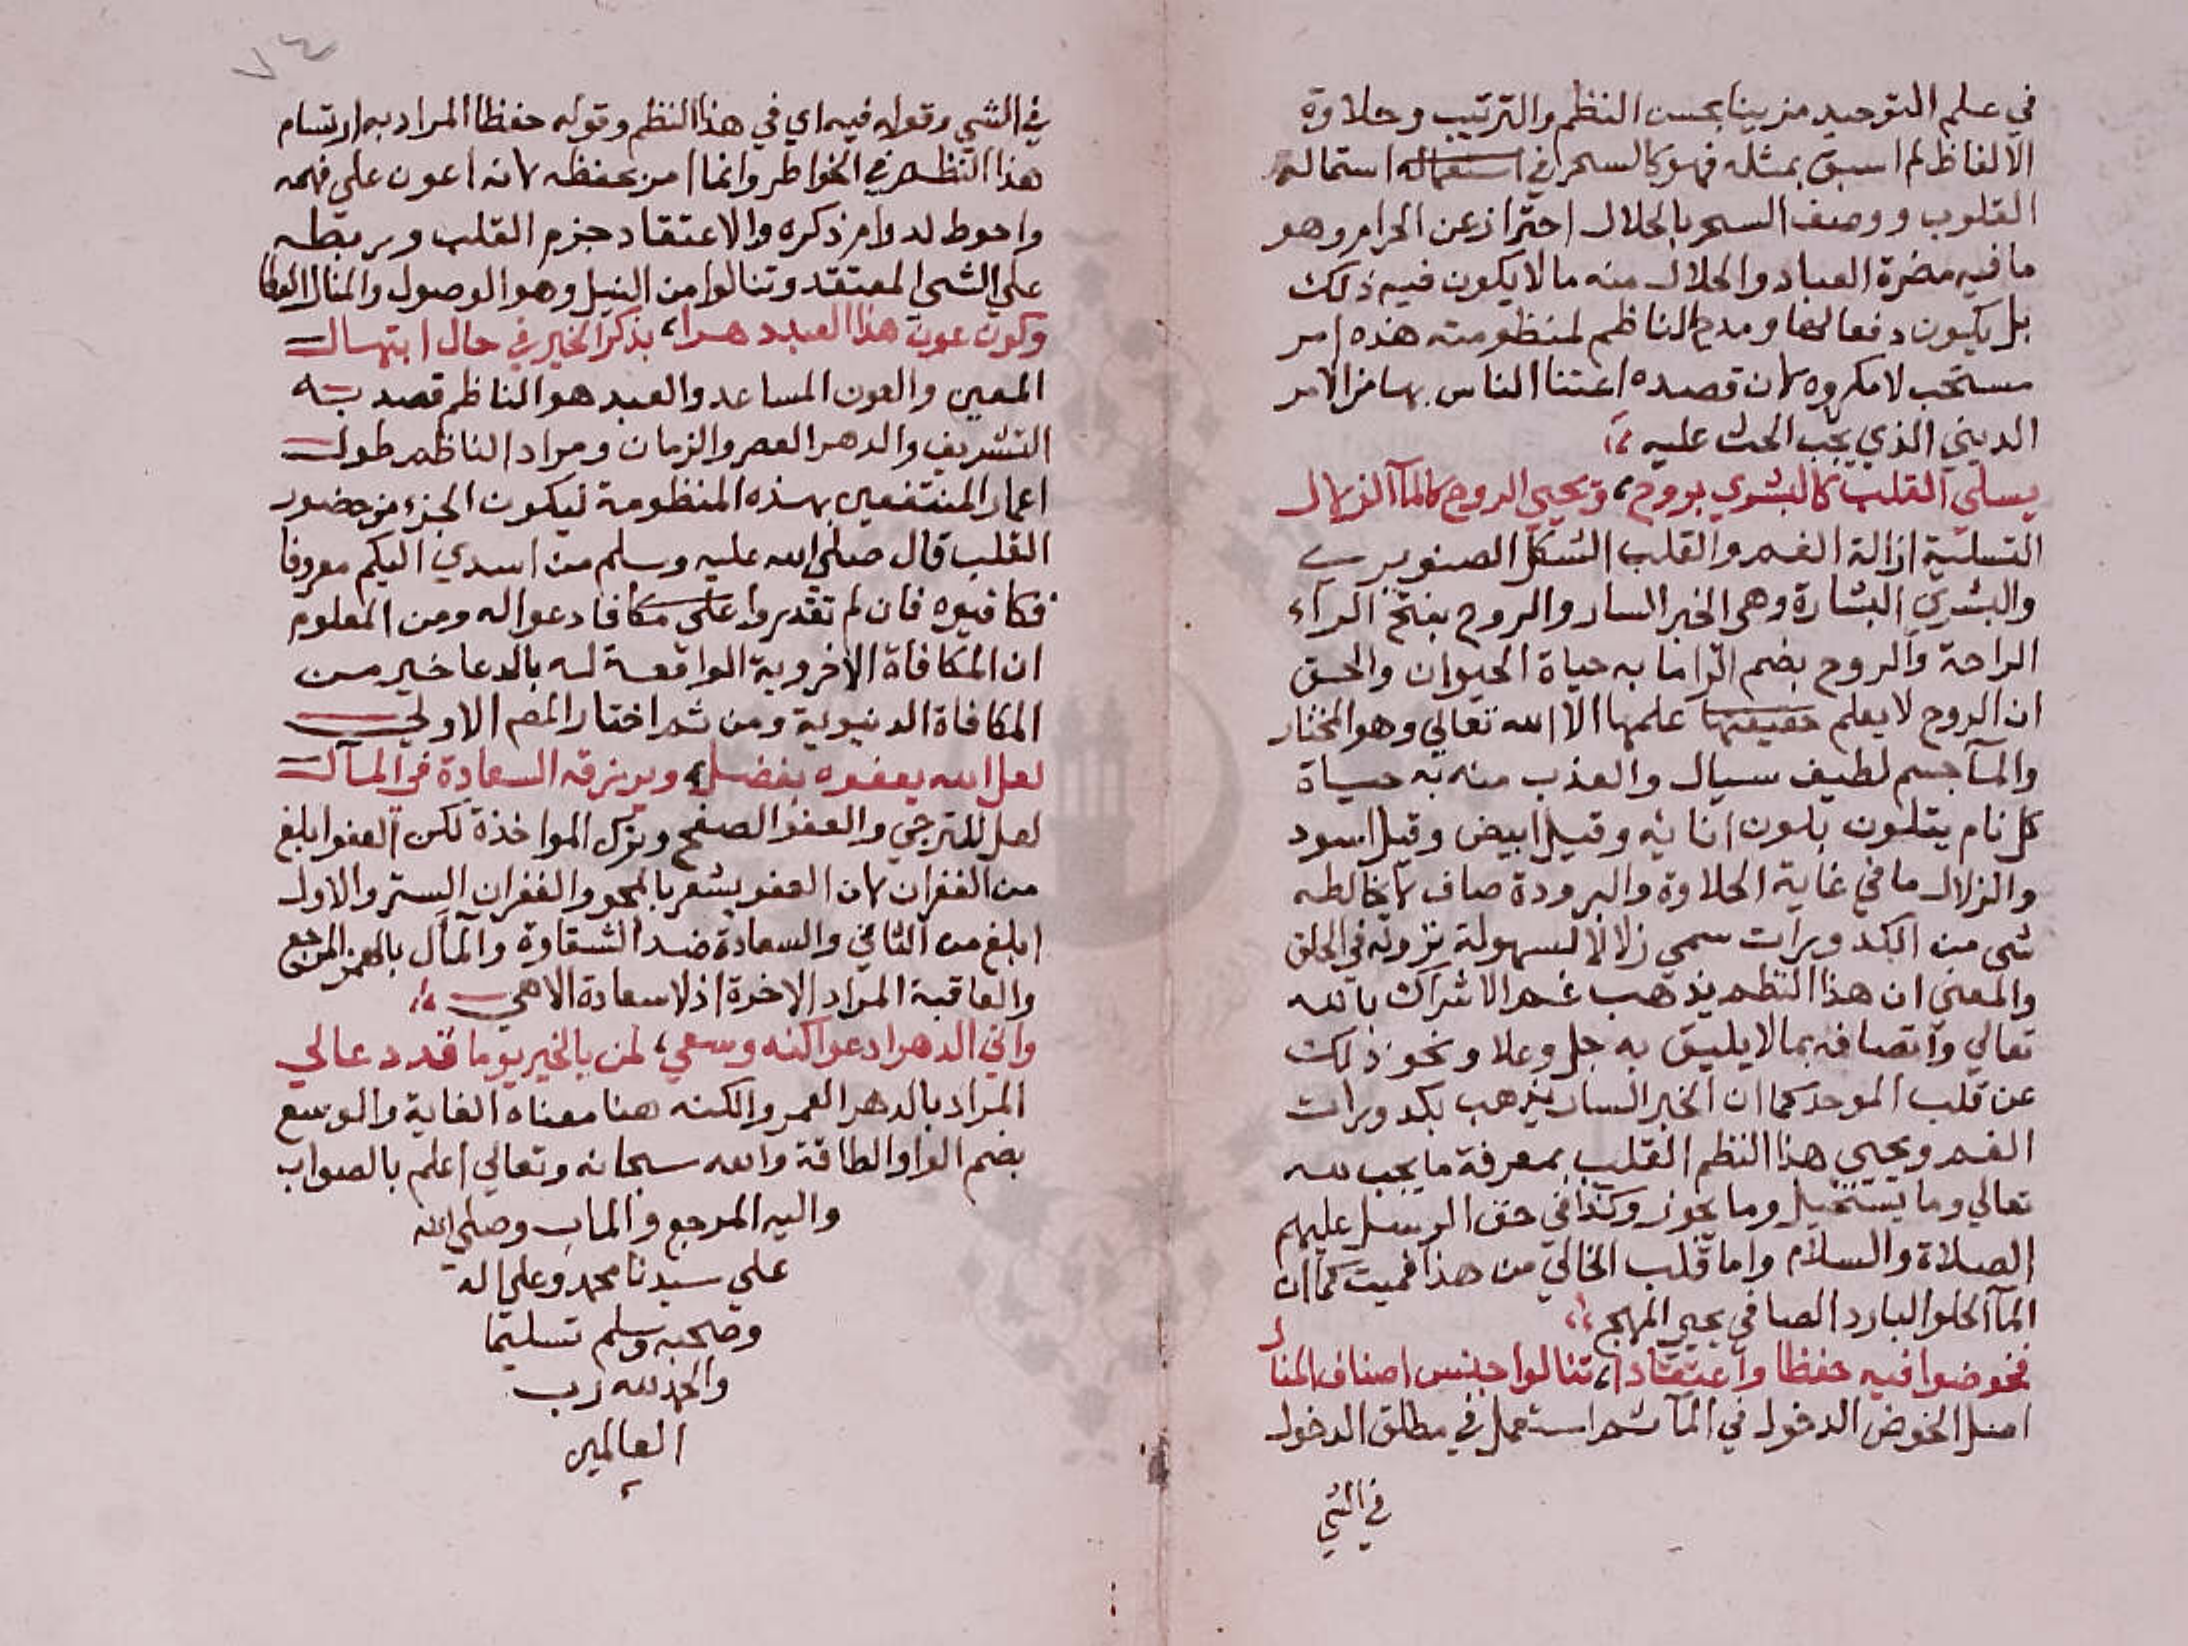 في علم التوحيد مزينا بحسن النظم والترتيب وحلاوة
الالفاظ لم اسبق بمثله فهو كالسحر في استماله
القلوب ووصف السحر بالحلال احتراز عن الحرام وهو
ما فيه مضرة العباد والحلال منه ما لا يكون فيه ذلك
بل يكون دفعا لها ومدح الناظم لمنظومته هذه امر
مستحب لا مكروه لان قصده اعتنا الناس بها من الامر
الديني الذي يجب الحث عليه
يسلي القلب كالبشري بروح، ويحيي الروح كالمآ الزلال
التسلية ازالة الغم والقلب الشكل الصنوبري
والبشري البشارة وهي الخبر السار والروح بفتح الرآء
الراحة والروح بضم الرا ما به حياة الحيوان والحق
ان الروح لا يعلم حقيقتها علمها الا الله تعالي وهو المختار
والمآ جسم لطيف سيال والعذب منه به حياة
كل نام يتلون بلون انائه وقيل ابيض وقيل اسود
والزلال ما في غاية الحلاوة والبرودة صاف لا يخالطه
شي من الكدورات سمي زلالا لسهولة نزوله في الحلق
والمعني ان هذا النظم يذهب غم الاشراك بالله
تعالي واتصافه بما لا يليق به جل وعلا ونحو ذلك
عن قلب الموحد كما ان الخبر السار يذهب بكدورات
الغم ويحيي هذا النظم القلب بمعرفة ما يجب لله
تعالي وما يستحيل وما يجوز وكذا في حق الرسل عليهم
الصلاة والسلام واما قلب الخالي من هذا فميت كما ان
المآ الحلو البارد الصافي يحيي المهج
فخوضوا فيه حفظا واعتقادا، تنالوا جنس اصناف المنال
اصل الخوض الدخول في المآ ثم استعمل في مطلق الدخول
في الشي
٧٤
في الشي وقوله فيه اي في هذا النظم وقوله حفظا المراد به ارتسام
هذا النظم في الخواطر وانما امر بحفظه لانه اعون علي فهمه
واحوط لدوام ذكره والاعتقاد جزم القلب وربطه
علي الشي المعتقد وتنالوا من النيل وهو الوصول والمنال العطا
وكون عون هذا العبد دهرا، بذكر الخير في حال ابتهال
المعين والعون المساعد والعبد هو الناظم قصد به
التشريف والدهر العصر والزمان ومراد الناظم طول
اعمار المنتفعين بهذه المنظومة ليكون الجزء من حضور
القلب قال صلي الله عليه وسلم من اسدي اليكم معروفا
فكافيوه فان لم تقدروا علي مكافا دعوا له ومن المعلوم
ان المكافاة الاخروية الواقعة له بالدعا خير من
المكافاة الدنيوية ومن ثم اختار المصم الاولي
لعل الله يعفوه بفضل، ويرزقه السعادة في المآل
لعل للترجي والعفو الصفح وترك المواخذة لكن العفو ابلغ
من الغفران لان العفو يشعر بالمحو والغفران الستر والاول
ابلغ من الثاني والسعادة ضد الشقاوة والمآل بالهمز المرجع
والعاقبة المراد الاخرة اذ لا سعادة الا هي
واني الدهر ادعوا كنه وسعي، لمن بالخير يوما قد دعالي
المراد بالدهر العمر والكنه هنا معناه الغاية والوسع
بضم الواو الطاقة والله سبحانه وتعالي اعلم بالصواب
واليه المرجع والماب وصلي الله
علي سيدنا محمد وعلي اله
وصحبه وسلم تسليما
والحمد لله رب
العالمين